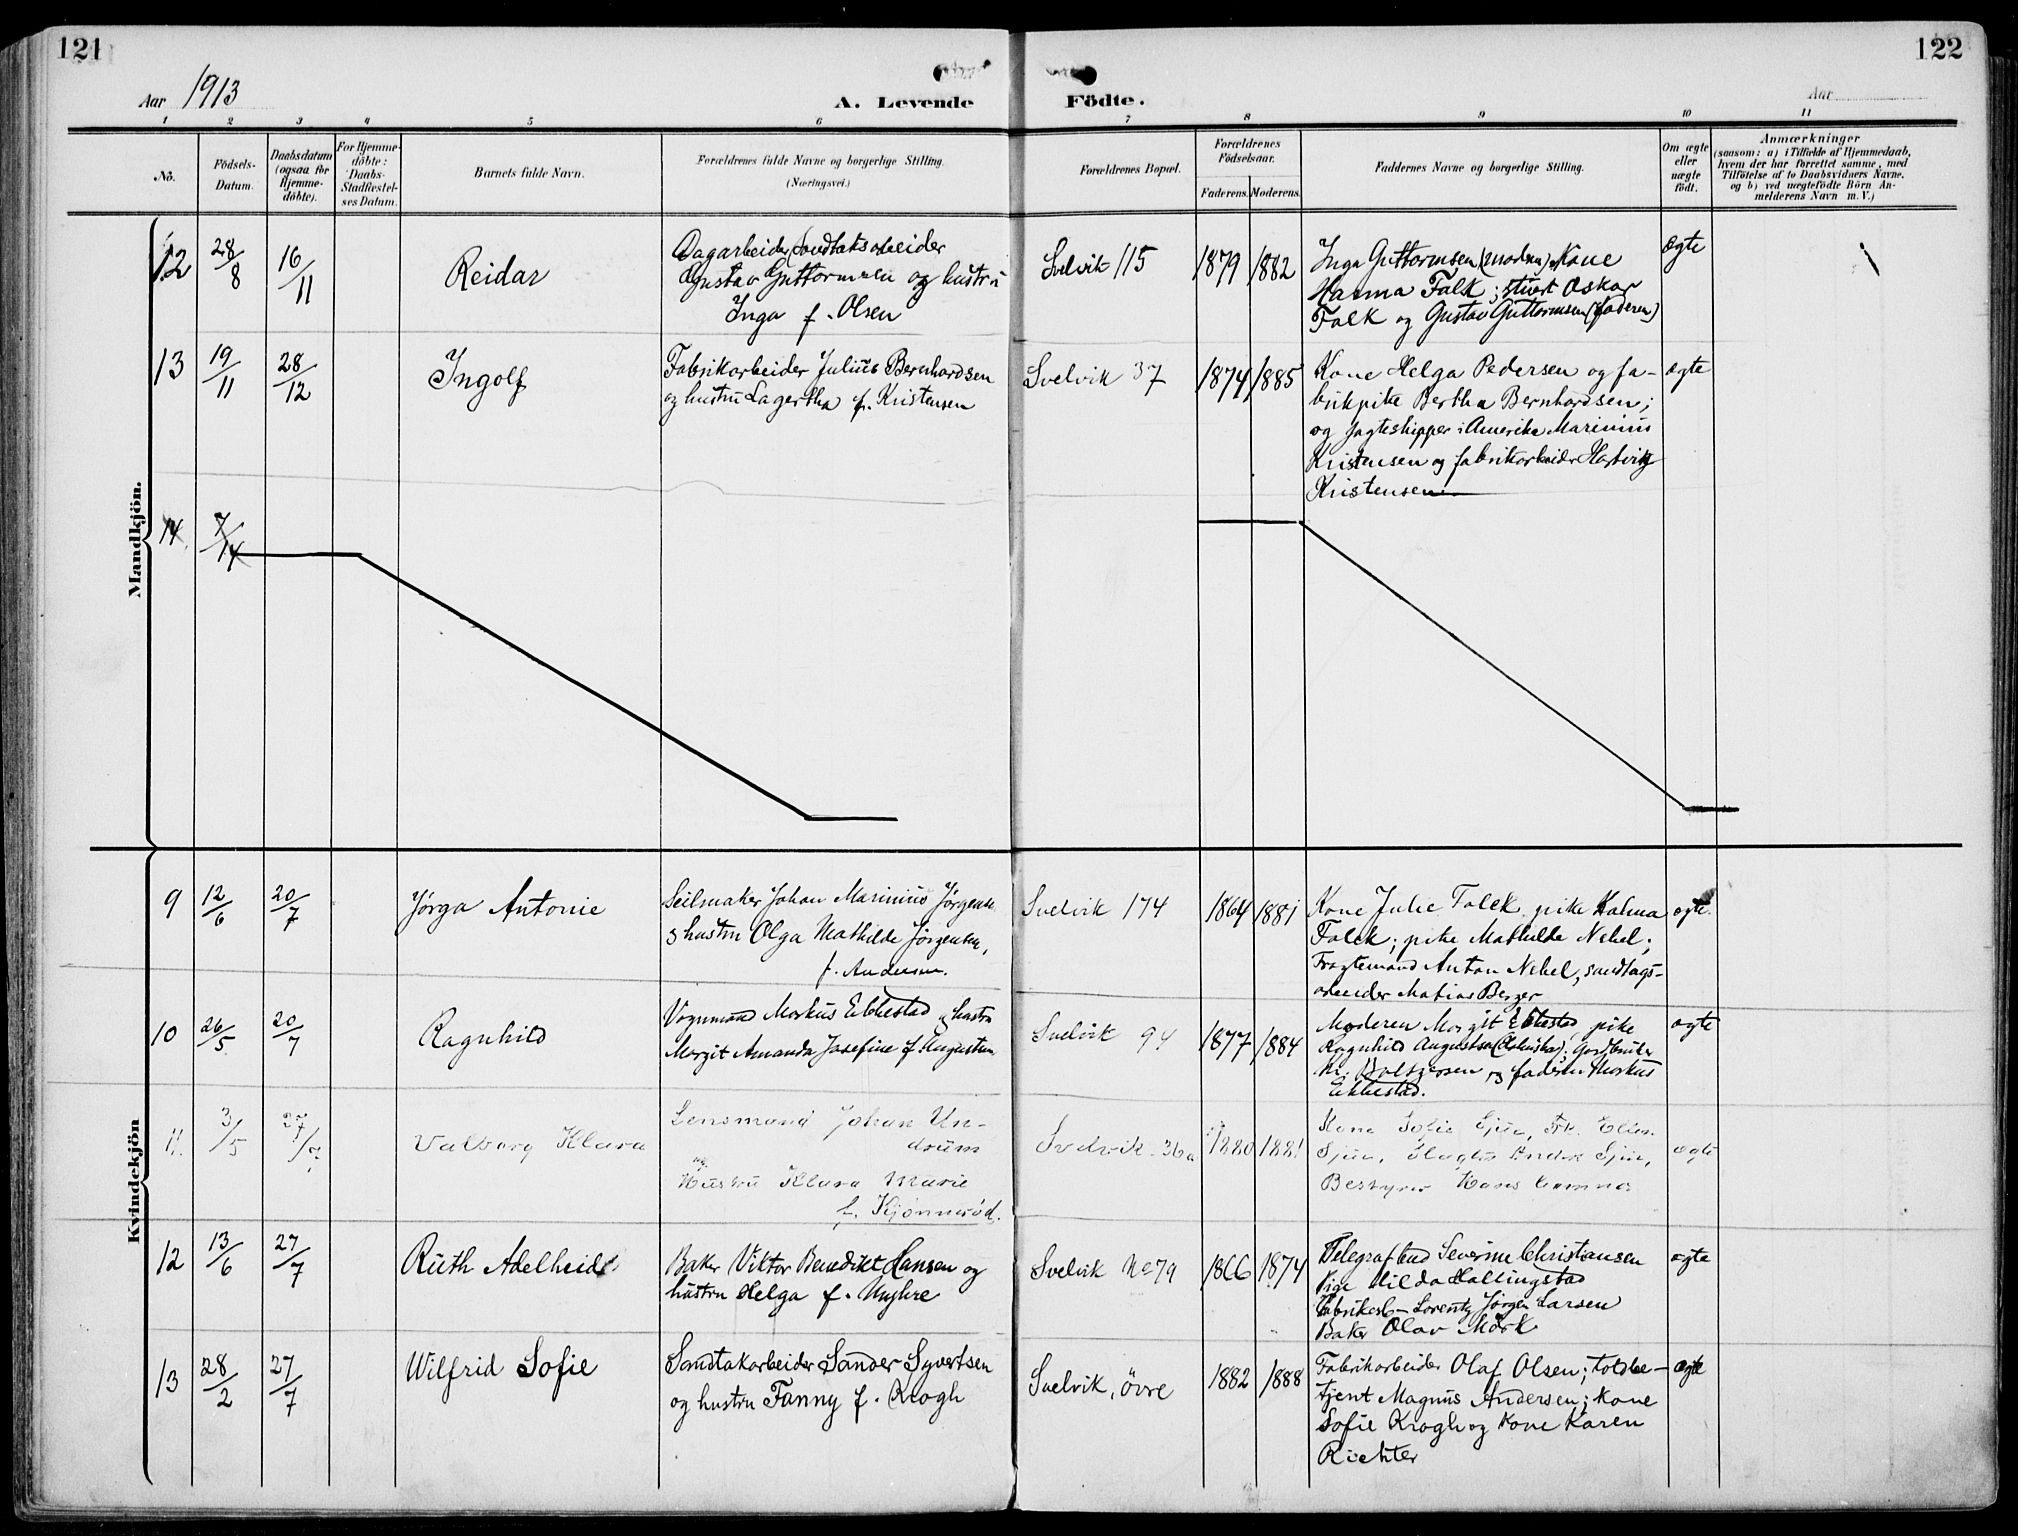 121
122
Aar 1913
A. Levende Födte.
Aar
1 2 3 4 5 6 7 8 9 10 11
Nō.
Födsels-
Datum.
Daabsdatum
(ogsaa for
Hjemme-
döbte).
For Hjemme-
döbte:
Daabs-
Stadfæstel-
ses Datum.
Barnets fulde Navn.
Forældrenes fulde Navne og borgerlige Stilling.
(Næringsvei.)
Forældrenes Bopæl.
Forældrenes
Födselsaar.
Faderens. Moderens.
Faddernes Navne og borgerlige Stilling.
Om ægte
eller
uægte
födt.
Anmærkninger
(saasom: a) i Tilfælde af Hjemmedaab,
hvem der har forrettet samme, med
Tilföielse af to Daabsvidners Navne.
og b) ved uægtefödte Börn An-
melderens Navn m. V.)
Mandkjön.
12 28/8 16/11 Reidar
Dagarbeider (sandtaksarbeider
Gustav Guttormsen og hustru
Inga f. Olsen
Svelvik 115 1879 1882
Inga Guttormsen (moderen), Kone
Hanna Falk; stuert Oskar
Falk og Gustav Guttormsen (faderen)
ægte
13 19/11 28/12 Ingolf
Fabrikarbeider Julius Bernhardsen
og hustru Lagertha f. Kristensen
Svelvik 37 1874 1885
Kone Helga Pedersen og fa-
brikpike Bertha Bernhardsen;
og jagteskipper i Amerika Marinius
Kristensen og fabrikarbeider Hartvig
Kristensen
ægte
14. 7/14
Kvindekjön
9 12/6 20/7 Jørga Antonie
Seilmaker Johan Marinius Jørgensen
& hustru Olga Mathilde Jørgensen,
f. Andersen.
Svelvik 174 1864 1881
Kone Julie Falck, pike
Falck; pike Mathilde Nebel;
Fragtemand Anton Nebel, sandtags-
arbeider Matias Berger
ægte
10 26/5 20/7 Ragnhild
Vognmand Markus Ebbestad og hustru
Margit Amanda Josefine f. Augustsen
Svelvik 94 1877 1884
Moderen Margit Ebbestad, pike
Ragnhild Augustsen
og faderen Markus
Ebbestad.
ægte
11. 3/5 27/7 Valborg Klara
Lensmand Johan Un-
drum
og
Hustru Klara Marie
f. Kjønnerød.
Svelvik 36a 1880 1881
Kone Sofie
Bestyrer Hans
ægte
12 13/6 27/7 Ruth Adelheid
Baker Viktor Benedikt Hansen og
hustru Helga f. Unghre
Svelvik No 79 1866 1874
Severine Christiansen
Pige Hilda Hallingstad
Fabrikarb- Lorentz Jørgen Larsen
Baker Olav Mörk
ægte
13 28/2 27/7 Wilfrid Sofie
Sandtakarbeider Sander Syvertsen
og hustru Fanny f. Krogh
Svelvik, övre 1882 1888
Fabrikarbeider Olaf Olsen; toldbe-
tjent Magnus Andersen; kone
Sofie Krogh og kone Karen
Richter
ægte